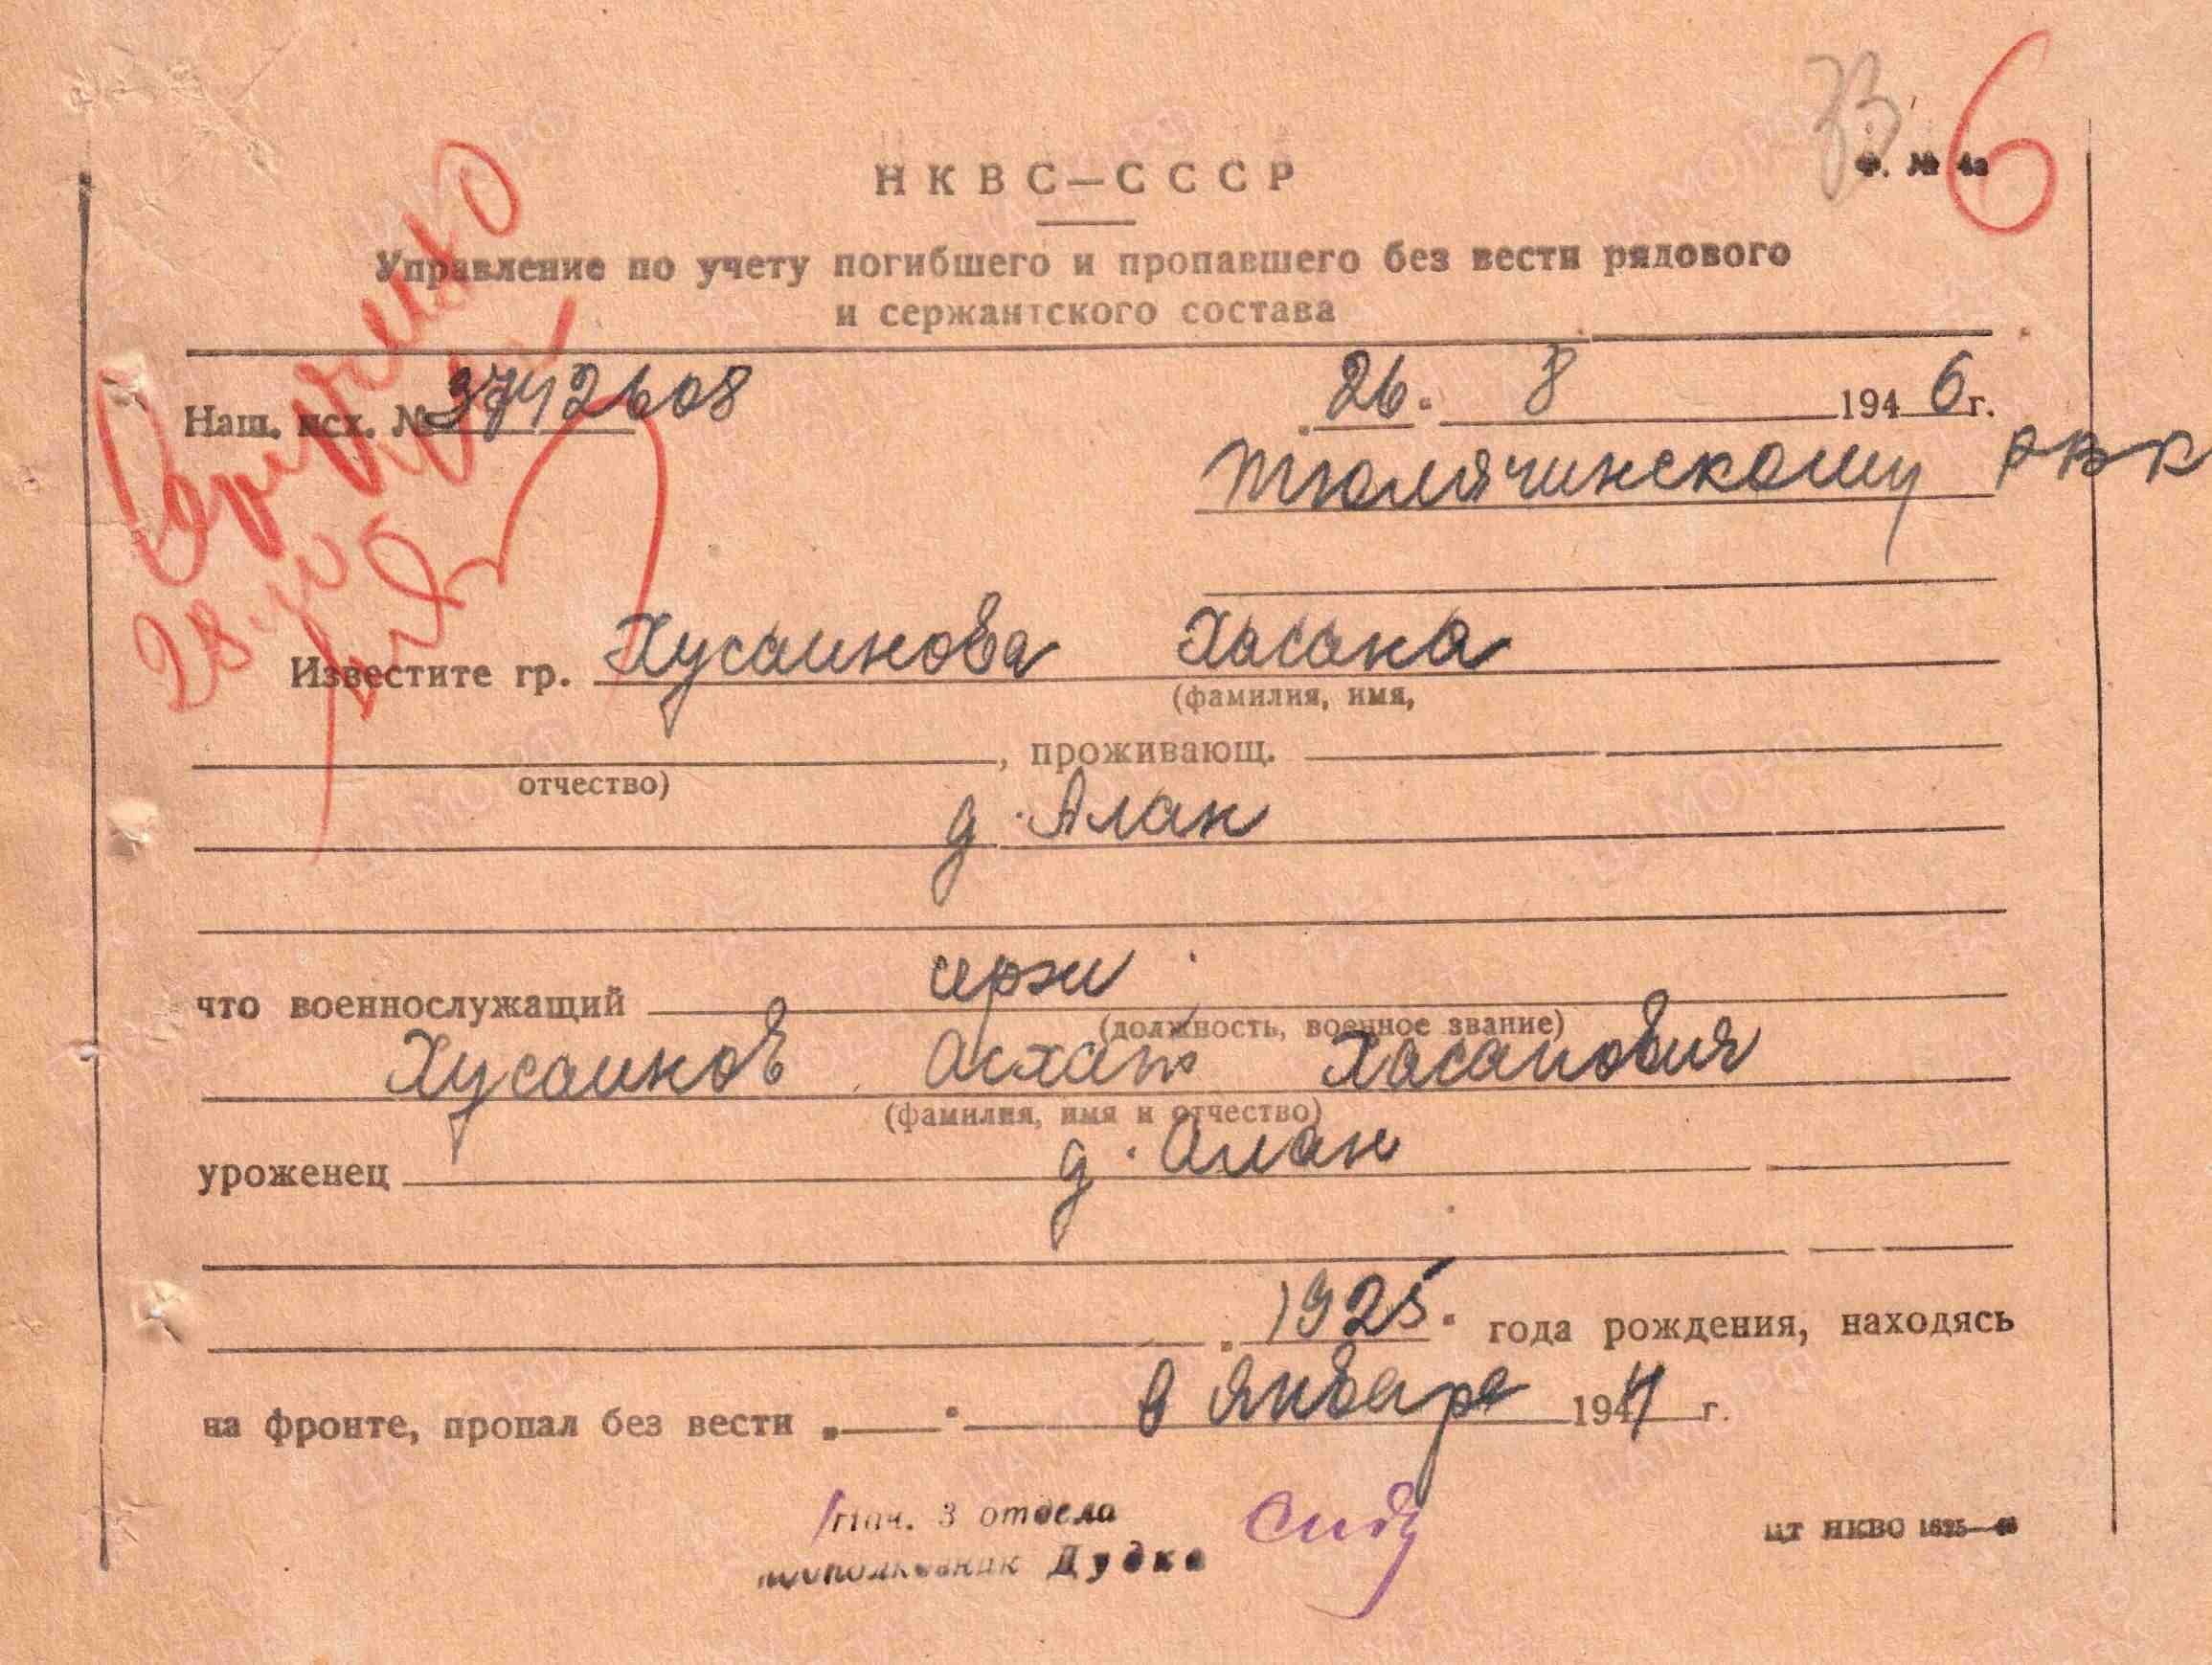 6
Ф. № 4а
НКВС—СССР
Управление по учету погибшего и пропавшего без вести рядового
и сержантского состава
Вручено
Наш. исх. № 3742608
26. 8 1946 г.
Тюлячинскому РВК
Известите гр. Хусаинова Хасана
(фамилия, имя,
, проживающ.
отчество)
д. Алан
что военнослужащий серж
(должность, военное звание)
Хусаинов Асхат Хасанович
(фамилия, имя и отчество)
уроженец д. Алан
1925. года рождения, находясь
на фронте, пропал без вести в январе 1944 г.
Нач. 3 отдела
подполковник Дудка